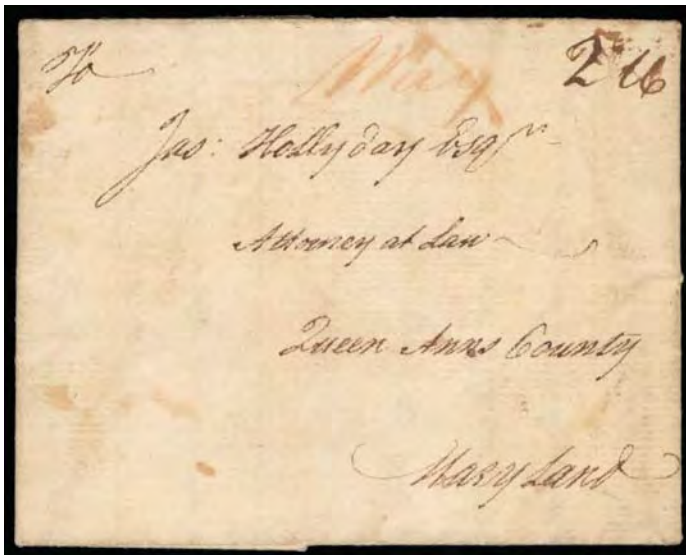 To
Way
2 16
Jas: Hollyday Esqr
Attorney at Law
Queen Anns County
Mary Land